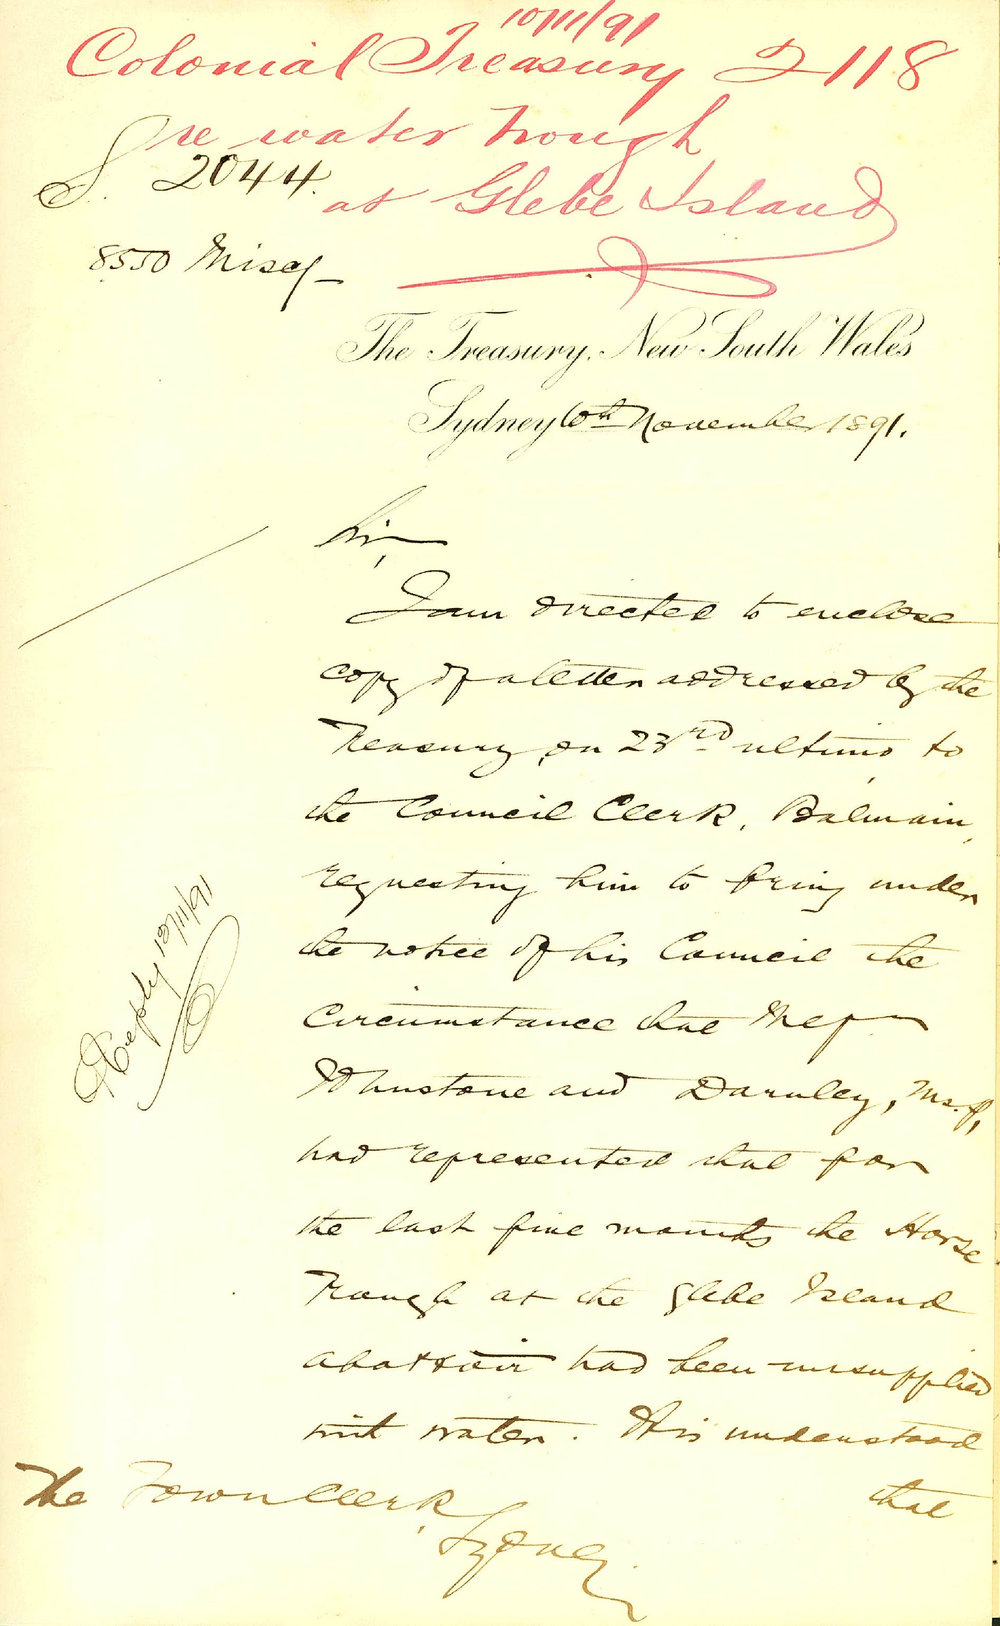 10/11/91
Colonial Treasury 2118
re water trough
S. 2044.
at Glebe Island
8550 Miscy
The Treasury, New South Wales
Sydney 10th November 1891.
Sir,
I am directed to enclose
copy of a letter addressed by the
Treasury, on 23rd ultimo, to
the Council Clerk, Balmain,
requesting him to bring under
the notice of his Council the
circumstance that Messrs
Johnstone and Darnley, Ms.P,
had represented that for
the last five months the Horse
Trough at the Glebe Island
abattoir had been unsupplied
with water. It is understood
that
The Town Clerk,
Sydney.
Reply 10/11/91